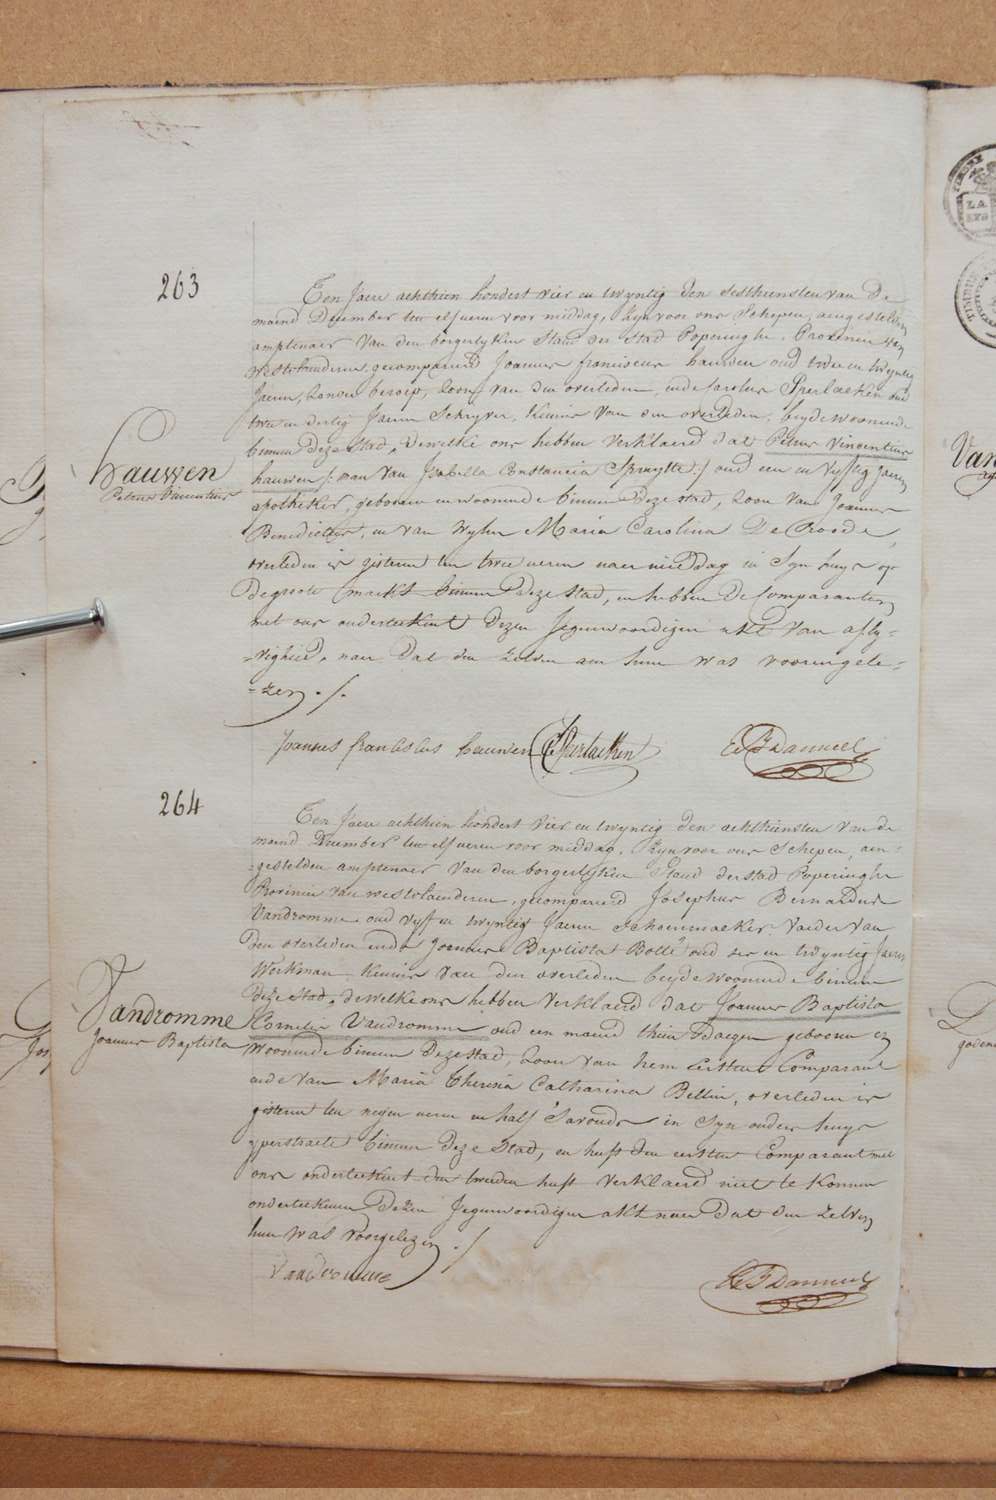 263
Ten Jaere achthien hondert vier en twyntig den sesthiensten van De
maend December ten elf ueren voor middag, zyn voor ons Schepen, aengestelden
amptenaer van den borgerlyken Stand der Stad Poperinghe, Provincie van
westvlaenderen, gecompareerd Joannes franciscus hauwen oud twee en twyntig
Jaeren, zonder beroep, zoon van den overleden, ende Carolus Sperlaeken oud
twee en dertig Jaeren Schryver, kennis van den overleden, beyde woonende
binnen Deze Stad, Dewelke ons hebben verklaerd dat Petrus Vincentius
hauwen /: man van Isabella Constancia Spruytte :/ oud een en vyftig Jaeren
apotheker, geboren en woonende binnen Deze stad, zoon van Joannes
Benedictus, en van wylen Maria Carolina De Croode,
overleden is gisteren ten twee ueren naer middag in Syn huys op
De groote markt binnen Deze Stad, en hebben De Comparanten
met ons onderteekent Dezen Jegenwoordigen akt van afly-
-vigheid, naer Dat den zelven aen hun was vooren gele-
-zen ./.
hauwen
Petrus Vincentius
Joannes franciscus hauwen C Sperlaeken
264
Ten Jaere achthien hondert vier en twyntig den achthiensten van de
maend December ten elf ueren voor middag, zyn voor ons Schepen, aen-
-gestelden amptenaer van den borgerlyken Stand der stad Poperinghe
Provincie van westvlaenderen, gecompareerd Josephus Bernardus
Vandromme oud vyf en twyntig Jaeren Schoenmaeker vaeder van
Den overleden ende Joannes Baptista Bolle oud ses en twyntig Jaeren
Werkman kennis van den overleden beyde woonende binnen
Deze stad, dewelke ons hebben verklaerd dat Joannes Baptista
Cornelis Vandromme oud een maend thien Daegen geboren en
woonende binnen Deze stad, zoon van hem eersten Comparant
ende van Maria Theresia Catharina Bellin, overleden is
gisteren ten negen ueren en half 's avonds in Syn ouders huys
yperstraete binnen Deze Stad, en heeft den eersten Comparant met
ons onderteekent den tweeden heeft verklaerd niet te konnen
onderteekenen Dezen Jegenwoordigen akt naer Dat den zelven
hun was voorgelezen ./
Vandromme
Joannes Baptista
Vandromme